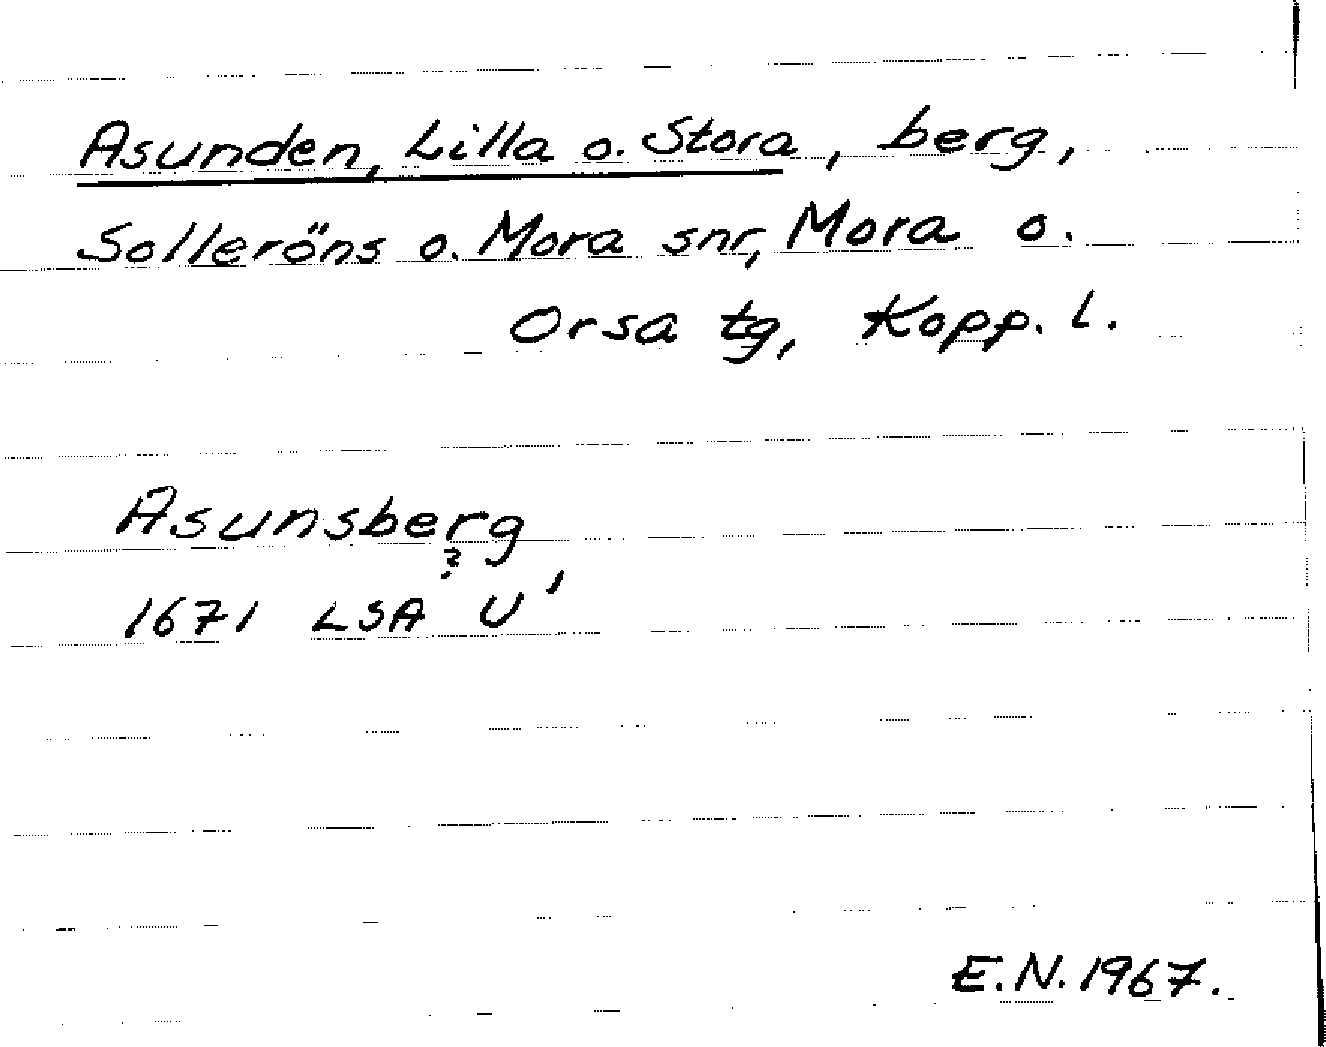 Asunden, Lilla o. Stora, berg,
Solleröns o. Mora snr, Mora o.
Orsa tg, Kopp. l.
Asunsberg
?
1671 LSA U'
E.N. 1967.